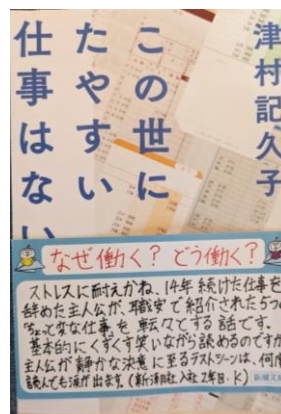 津村記久子
この世に
たやすい
仕事はない
なぜ働く？ どう働く？
ストレスに耐えかね、14年続けた仕事を
辞めた主人公が、職安で紹介された5つの
「ちょっと変な仕事」を転々とする話です。
基本的にくすくす笑いながら読めるのですが
主人公が静かな決意に至るラストシーンは、何度
読んでも涙が出ます。(新潮社入社2年目・K)
新潮文